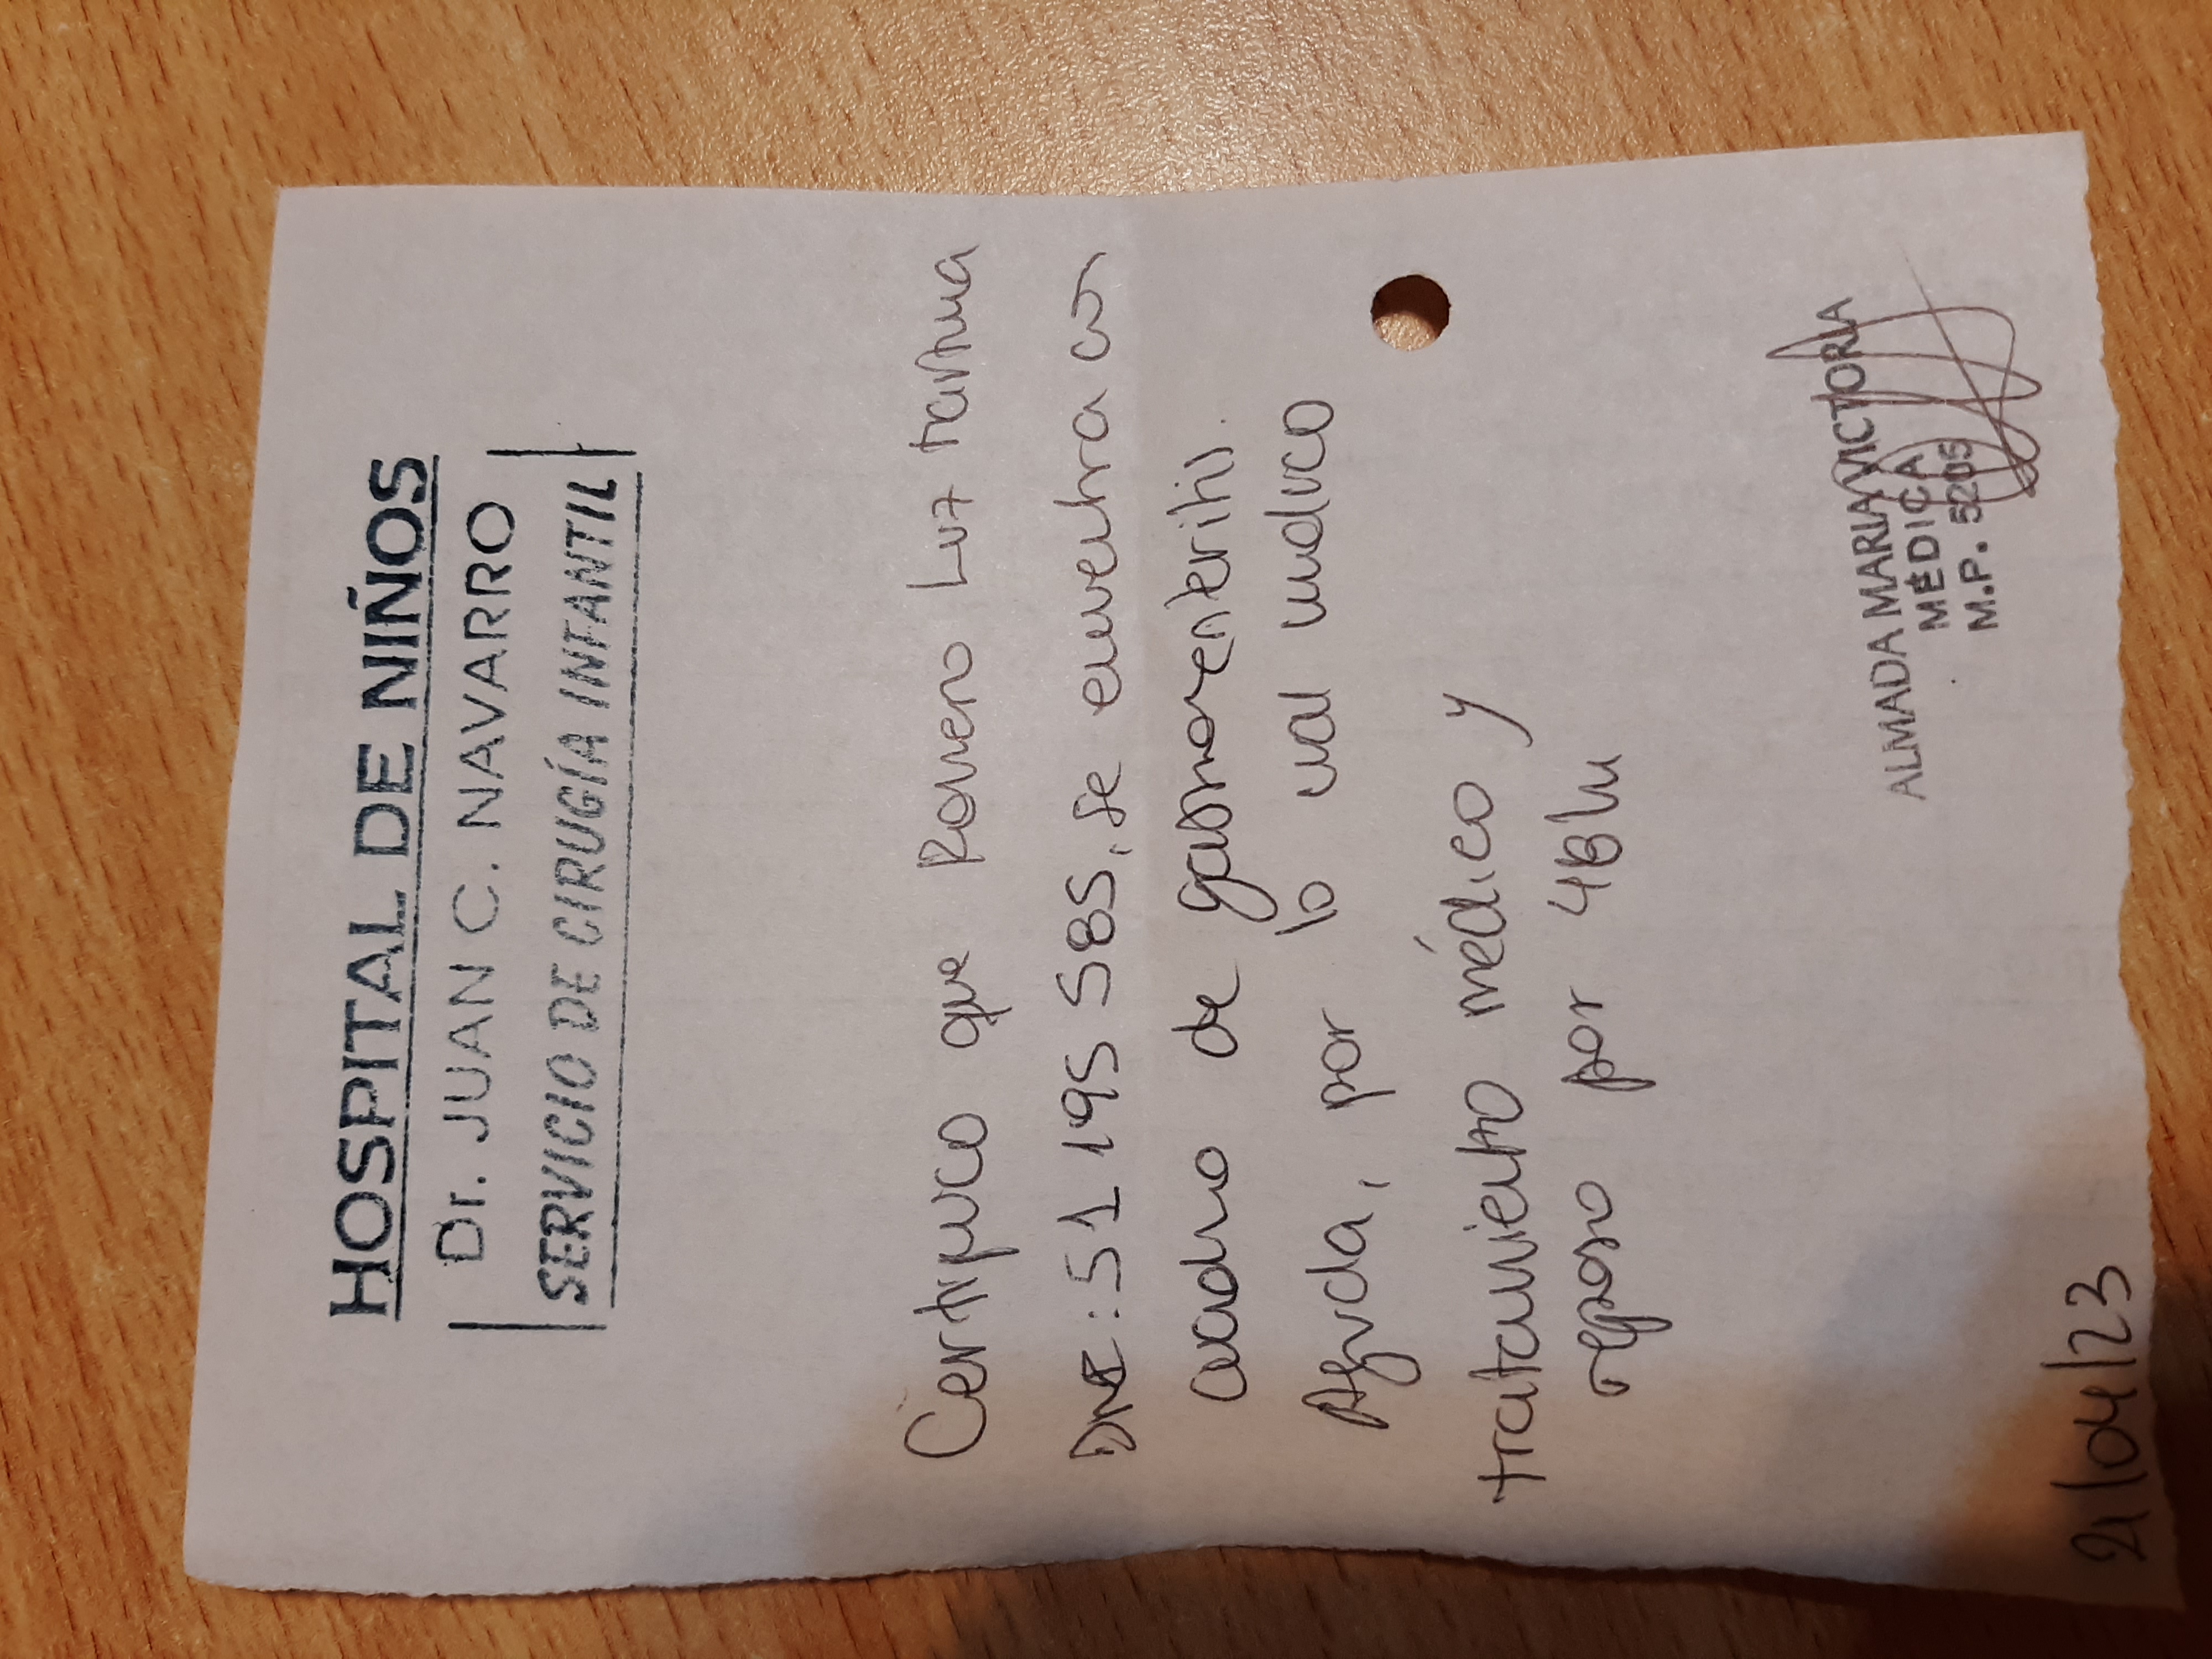 HOSPITAL DE NIÑOS
Dr. JUAN C. NAVARRO
SERVICIO DE CIRUGÍA INFANTIL
Certifico que Romero Luz
DNI: 51 195 585, se encuentra con
cuadro de gastroenteritis
Aguda, por lo cual indico
tratamiento médico y
reposo por 48hs
ALMADA MARIA VICTORIA
MÉDICA
M.P. 5205
21/04/23